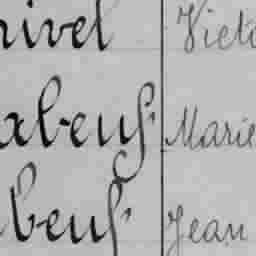 nivel Victo
abeuf. Marie
beuf. Jean